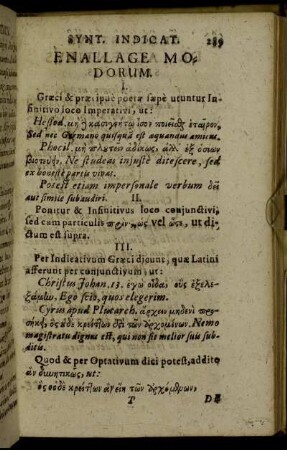 SYNT. INDICAT. 289
ENALLAGE MO-
DORUM.
I.
Græci & præcipuè poetæ sæpè utuntur In-
finitivo loco Imperativi, ut:
Hesiod. μὴ ἢ κασιγνήτῳ ἶσον ποιεῖσθαι ἑταῖρον,
Sed nec Germano quisquã est æquandus amicus.
Phocil. μὴ πλουτεῖν ἀδίκως, ἀλλ' ἐξ ὁσίων
βιοτεύειν. Ne studeas injustè ditescere, sed
ex honestè partis vivas.
Potest etiam impersonale verbum δεῖ
aut simile subaudiri.
II.
Ponitur & Infinitivus loco conjunctivi,
sed cum particulis πρὶν, πῶς vel ὥστε, ut di-
ctum est supra.
III.
Per Indicativum Græci dicunt, quæ Latini
afferunt per conjunctivum, ut:
Christus Johan. 13. ἐγὼ οἶδα, οὓς ἐξελε-
ξάμην, Ego scio, quos elegerim.
Cyrus apud Plutarch. ἄρχειν μηδενὶ προ-
σήκειν, ὃς οὐ κρείττων ἐστὶ τῶν ἀρχομένων. Nemo
magistratu dignus est, qui non sit melior suis sub-
ditis.
Quod & per Optativum dici potest, addito
ἂν δυνητικῶς, ut:
ὃς οὐδὲ κρείττων ἂν εἴη τῶν ἀρχομένων,
T DE